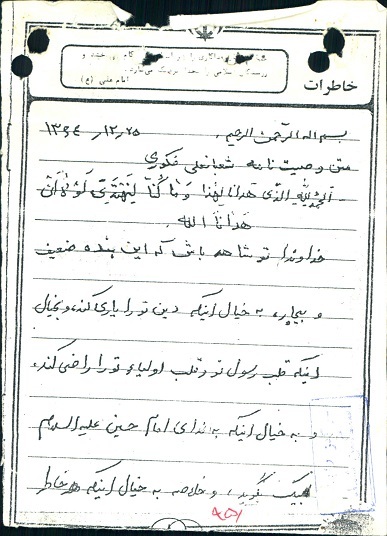 امام علی (ع)
خاطرات
بسم الله الرحمن الرحیم. ۲۵ر۱۲ر۱۳۶۴
متن وصیت نامه شعبانعلی فکوری
الحمدلله الذی هدانا لهذا وما کنا لنهتدی لولا ان
هدانا الله.
خداوندا تو شاهد باش که این بنده ضعیف
و بیچاره، به خیال اینکه دین تو را یاری کند، و بخیال
اینکه قلب رسول تو و قلب اولیاء تو را راضی کند،
و به خیال اینکه به ندای امام حسین علیه السلام
لبیک بگوید، و خلاصه به خیال اینکه خاطر